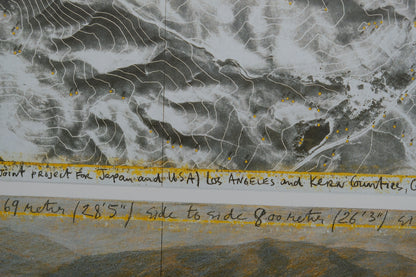 Joint project for Japan and USA) Los Angeles and Kern Counties, C
69 meter (28'5") side to side 8.00 meter (26'3") si